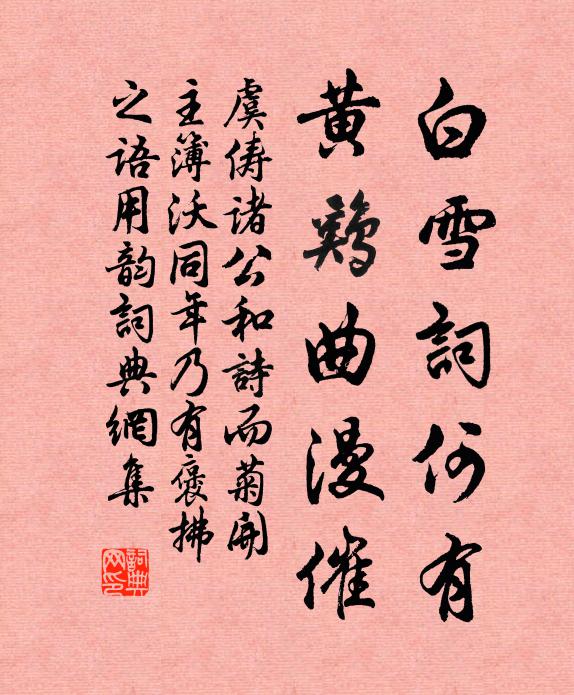 白雪詞何有
黄鶏曲漫催
虞儔诸公和詩而菊開
主簿沃同年乃有褒拂
之语用韵詞典網集
詞典网印